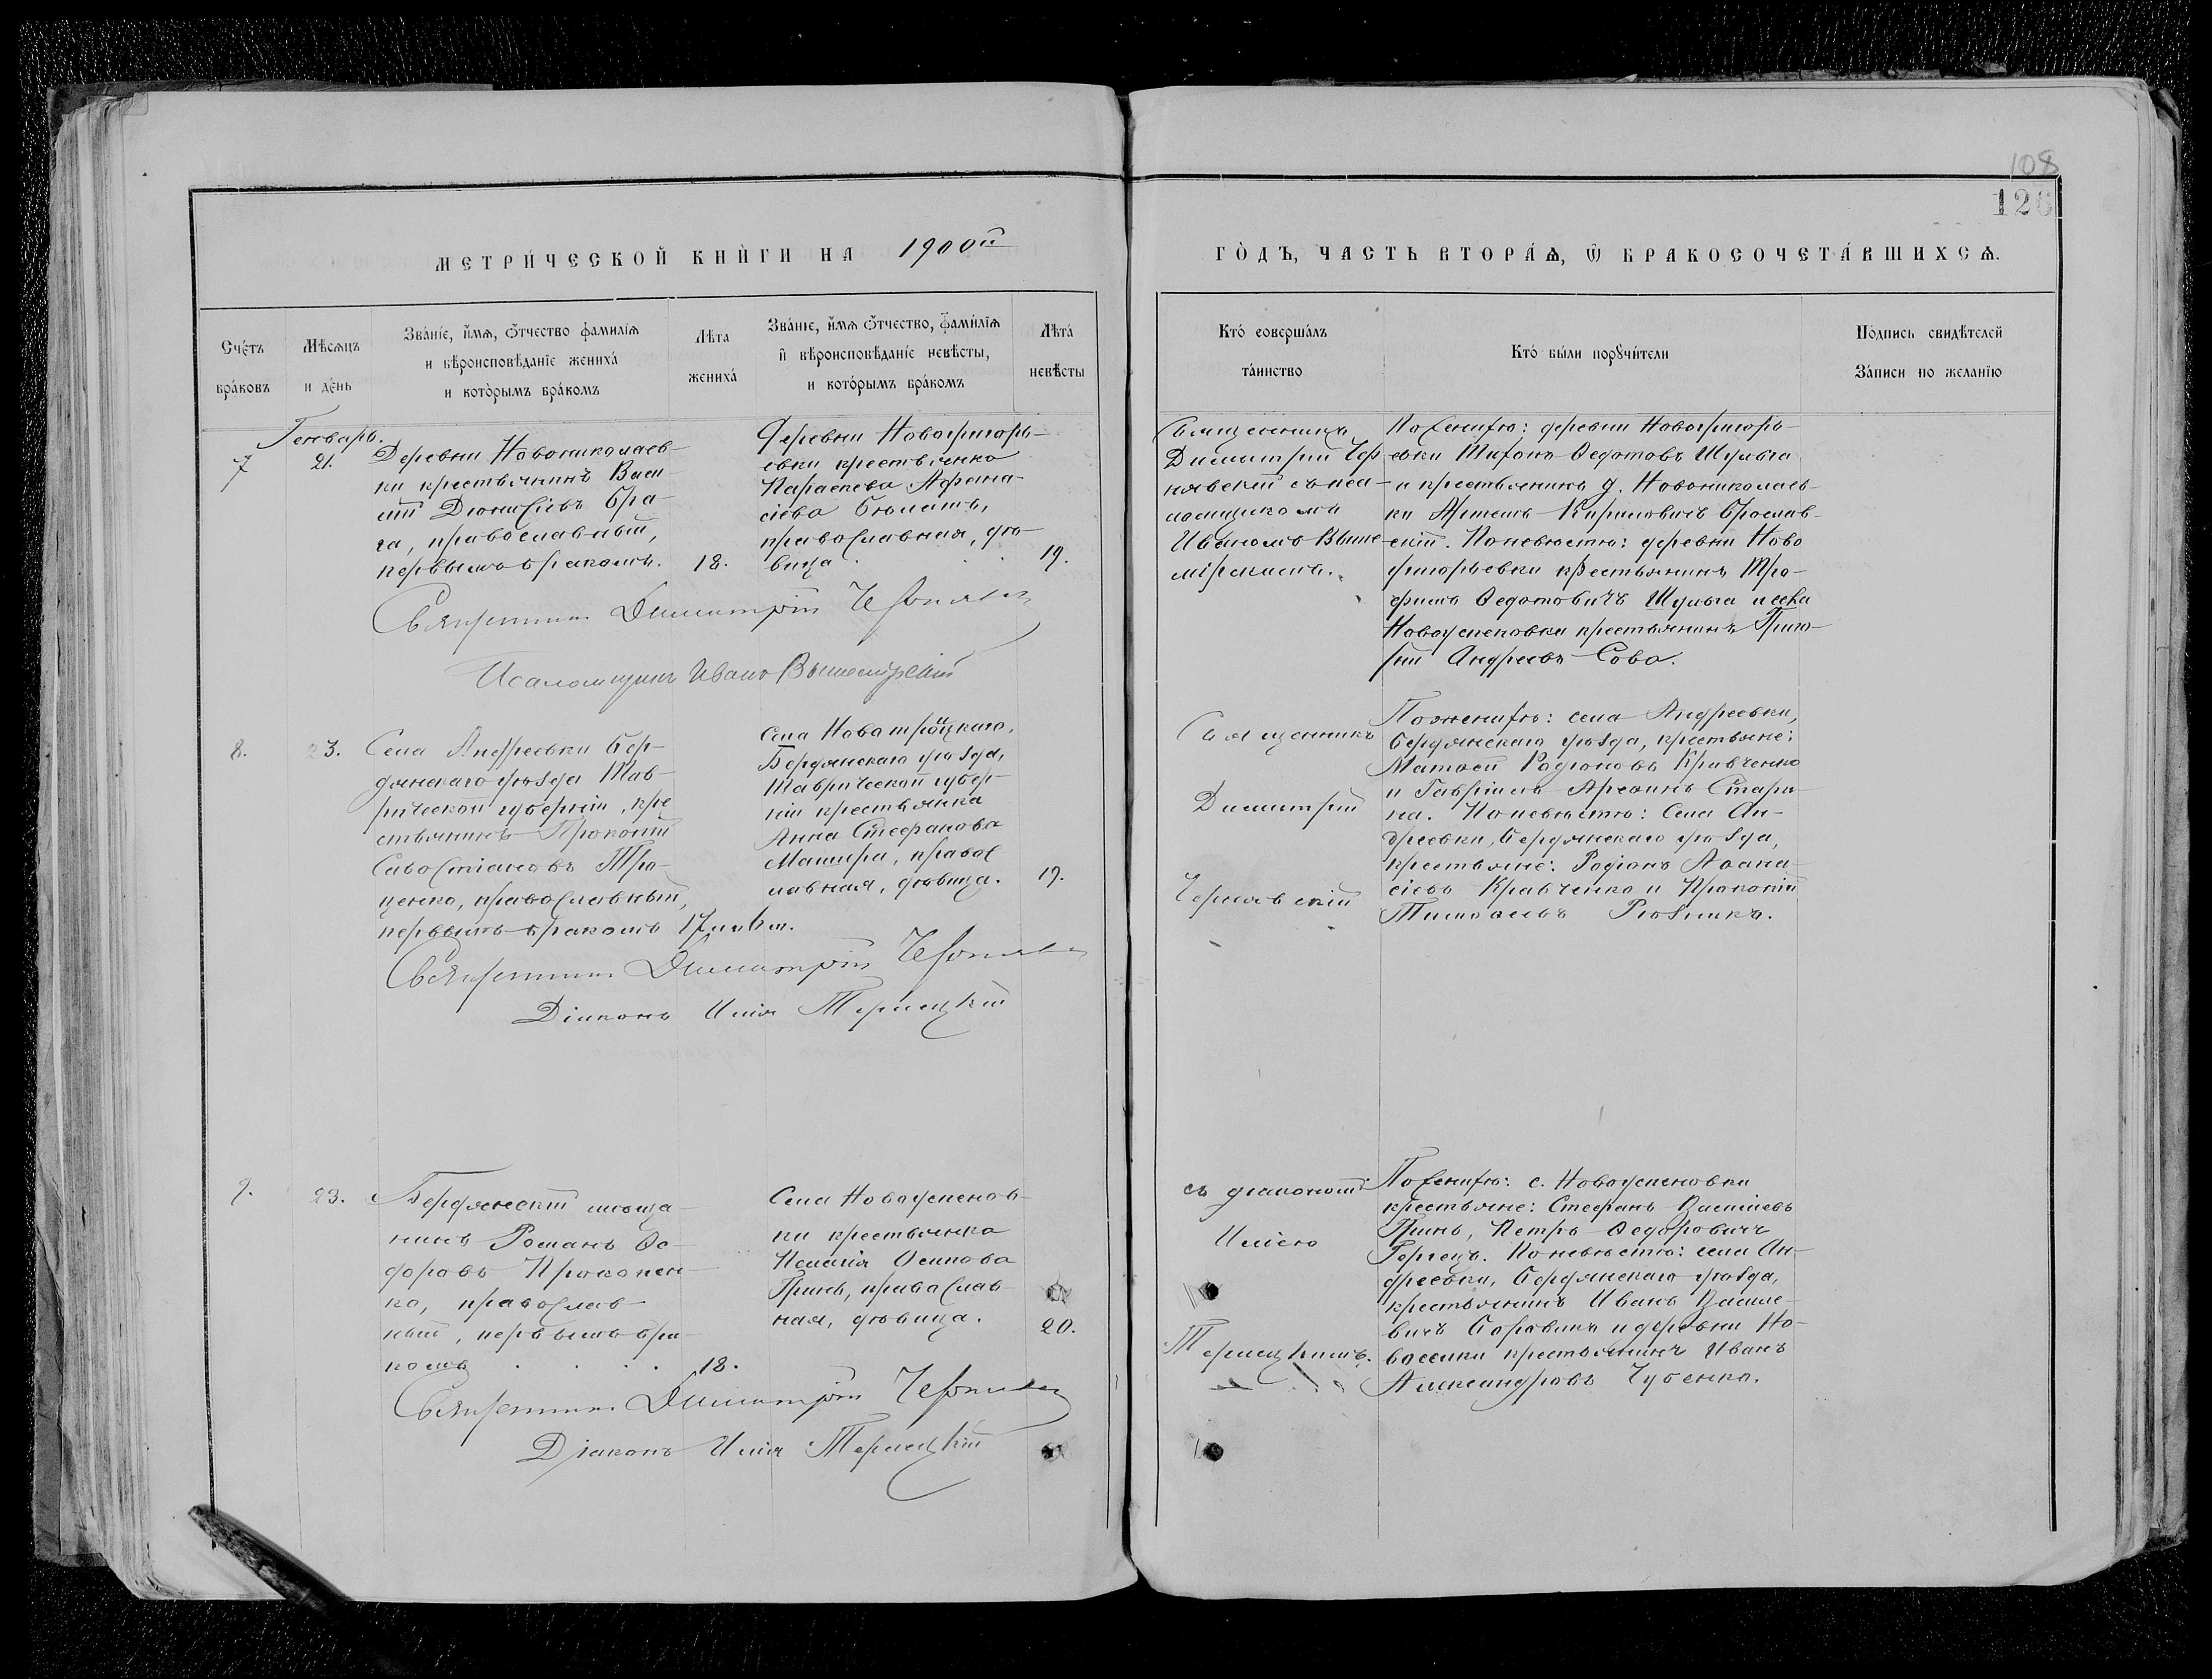 108
126
МЕТРИ́ЧЕСКОЙ КНИ́ГИ НА 1900й
ГО́ДЪ, ЧАСТЬ ВТОРА́Ѧ, Ѿ БРАКОСОЧЕТА́ВШИХСѦ.
Сче́тъ
бра́ковъ
Мѣ́сѧцъ
и де́нь
Зва́нїе, и́мѧ, ѻ́тчество фамилїѧ
и вѣроисповѣ́данїе жениха́
и кото́рымъ бра́комъ
Лѣ́та
жениха́
Зва́нїе, и́мѧ ѻ́тчество, фами́лїѧ
и вѣроисповѣ́данїе невѣ́сты,
и кото́рымъ бра́комъ
Лѣ́та
невѣ́сты
Кто́ соверша́лъ
та́инство
Кто́ бы́ли порꙋчи́тели
По́дпись свидѣ́телей
За́писи по жела́нїю
Генварь.
7
21.
Деревни Новониколаев-
ки крестьянинъ Васи-
лій Діонисіевъ Бра-
га, православный,
первымъ бракомъ.
18.
Деревни Новогригорь-
евки крестьянка
Параскева Афана-
сіева
православная, дѣ-
вица
19.
Священникъ
Димитрій Чер
нявскій съ пса-
ломщикомъ
Иваномъ Выше
мірскимъ.
По женихѣ: деревни Новогригорь-
евки Тихонъ Ѳедотовъ Шульга
и крестьянинъ д. Новониколаев-
ки Артемъ Кириловичъ
скій. По невѣстѣ: деревни Ново
григорьевки крестьянинъ Тро-
фимъ Ѳедотовичъ Шульга и села
Новоуспеновки крестьянинъ Григо-
рій Андреевъ Сова.
Священникъ Димитрій Чернявск
Псаломщикъ Иванъ Вышемірскій
8.
23.
Села Андреевки Бер-
дянскаго уѣзда Тав-
рической губерніи, кре
стьянинъ Прокопій
Савостіановъ Тро-
ценко, православный,
первымъ бракомъ
17 лѣт.
Села Новотроицкаго,
Бердянскаго уѣзда,
Таврической губер-
ніи крестьянка
Анна Стефанова
Мащира, правос
лавная, дѣвица.
19.
Священникъ
Димитрій
Чернявскій
По женихѣ: села Андреевки,
Бердянскаго уѣзда, крестьяне:
Матѳей Родіоновъ Кравченко
и Гавріилъ
на. По невѣстѣ: Села Ан-
дреевки, Бердянскаго уѣзда,
крестьяне: Родіонъ Аѳана-
сіевъ Кравченко и Прокопій
Тимоѳеевъ Рѣзникъ.
Священникъ Димитрій Чернявск
Діаконъ Илія Терлецкій
9.
23.
Бердянскій мѣща-
нинъ Романъ Ѳе-
доровъ Прокопен-
ко, православ-
ный, первымъ бра-
комъ
18.
Села Новоуспенов-
ки крестьянка
Пелагія Осипова
Гринь, православ-
ная, дѣвица.
20.
съ діакономъ
Иліею
Терлецкимъ.
По женихѣ: с. Новоуспеновки
крестьяне: Стефанъ Васильевъ
Гринь, Петръ Ѳедоровичъ
Герлецъ. По невѣстѣ: села Ан-
дреевки, Бердянскаго уѣзда,
крестьянинъ Иванъ Василе-
вичъ Боровикъ и деревни Но-
воселки крестьянинъ Иванъ
Александровъ Чубенко.
Священникъ Димитрій Чернявск
Діаконъ Илія Терлецкій